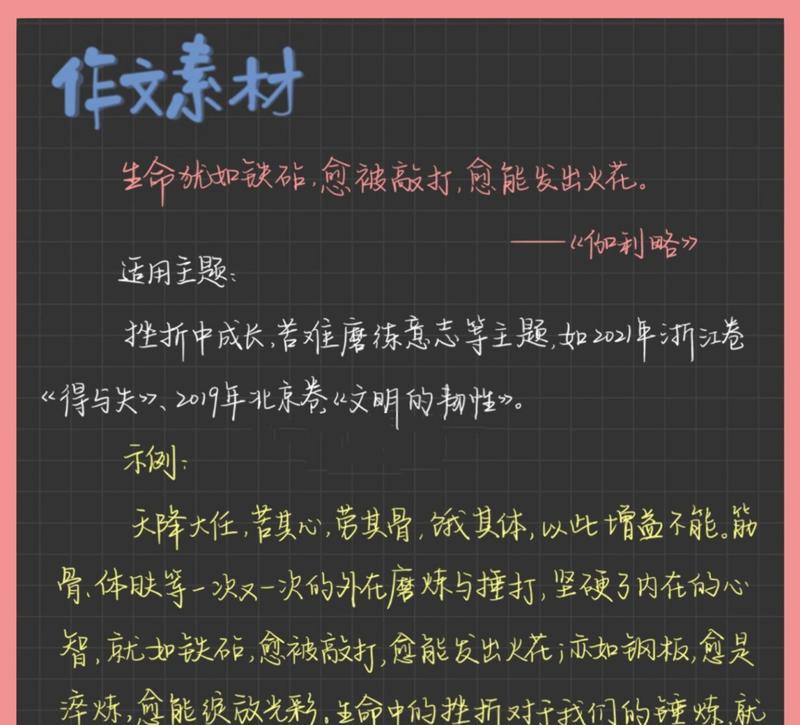 作文素材
生命犹如铁砧,愈被敲打,愈能发出火花。
——《伽利略》
适用主题:
挫折中成长,苦难磨练意志等主题,如2021年浙江卷
《得与失》、2019年北京卷《文明的韧性》。
示例:
天降大任,苦其心,劳其骨,饿其体,以此增益不能。筋
骨、体肤等一次又一次的外在磨炼与捶打,坚硬了内在的心
智,就如铁砧,愈被敲打,愈能发出火花;亦如钢板,愈是
淬炼,愈能绽放光彩。生命中的挫折对于我们的锤炼,就